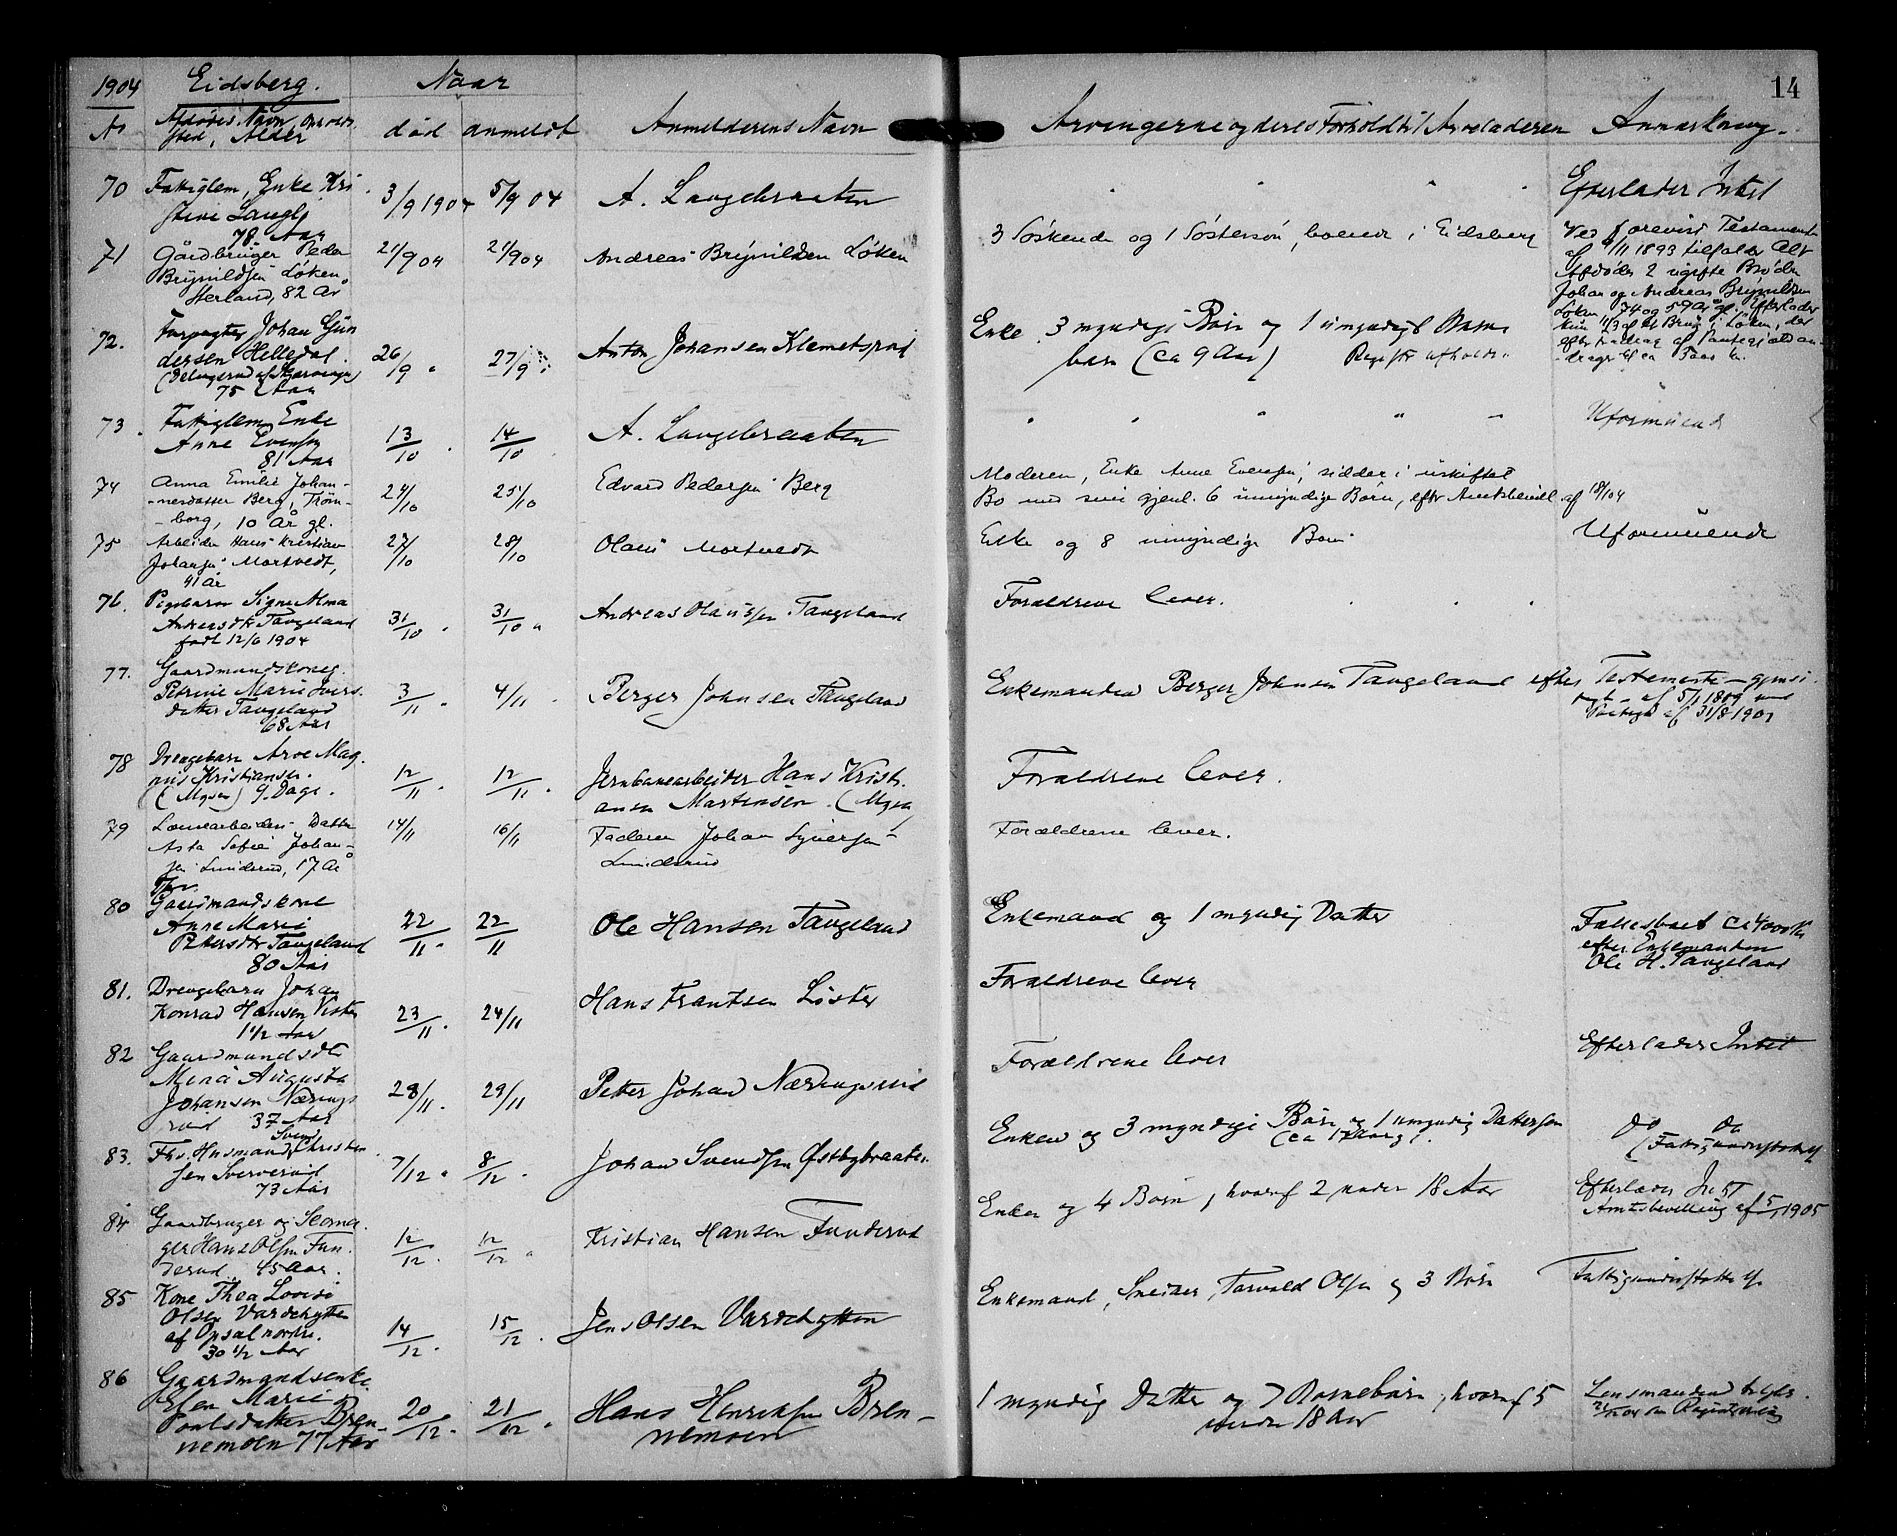 14
1904 Eidsberg. Naar
No Afdødes Navn,
sted, Alder død anmeldt Anmelderens Navn Arvingerne og deres Forholdtil Arveladeren Anmærkning.
70 Fattiglem, Enke Kri
stine 3/9 1904 5/9 04 A. Langebraaten Efterlader Intet
78 Aar
71 Gårdbruger Peder
Brynildsen Løken, 21/9 04 21/9 04 Andreas Brynildsen Løken 3 Søskende og 1 Søstersøn, boende i Eidsberg
82 År
Ved forevist Testament
af 4/11 1893 tilfalder Alt
Afdødes 2 ugifte Brødre
Johan og Andreas Brynildsen
Løken, 74 og 59 År gl. Efterlader
kun 1/3 af et Brug i Løken, der
efter fradrag af Pantegjæld an-
72. Forpagter Johan Gun
dersen Helledal 26/9 " 27/9 Anton Johansen Klemetsrud Enke. 3 myndige Børn og 1 umyndigt Barne
barn (ca 9 Aar)
75 Aar
73. Fattiglem Enke
Anne Evensen 13/10 . 14/10 . A. Langebraaten " " " " " Uformuende
81 Aar
74 Anna Emilie Johan-
-nesdatter Berg, Trøm- 24/10 25/10 Edvard Pedersen Berg Moderen, Enke Anne Evensen, sidder i uskiftet
-borg, 10 År gl. Bo med sine gjenl. 6 umyndige Børn, efter Amtsbevill. af
75 Arbeider Hans Kristian
Johansen Mortvedt, 27/10 28/10 Olaus Mortvedt Enke og 8 umyndige Børn Uformuende
41 År
76. Pigebarn Signe Alma
Andreasdtr Tangeland 31/10 . 31/10 " Andreas Olaussen Tangeland Forældrene lever.
født 12/6 1904
77. Gaardmandskone
Petrine Marie Ivers
datter Tangeland 3/11 . 4/11 . Berger Johnsen Tangeland Enkemanden Berger Johnsen Tangeland efter Testamente - gjensi
68 Aar
78 Drengebarn Arve Mag
nus Kristiansen. 12/11 . 12/11 . Jernbanearbeider Hans Kristi
(Mysen) 9. Dage. ansen Martinsen. (Mysen Forældrene lever.
79 Løsarbeiders Datter
Asta Sofie Johan- 14/11 16/11 Faderen Johan Syversen
sen Lunderud, 17 År Lunderud Forældrene lever.
80 Gaardmandskone
Anne Marie
Petersdtr Tangeland 22/11 . 22/11 Ole Hansen Tangeland Enkemand og 1 myndig Datter
80 Aar
Fællesboet ca 4000 Kr
efter Enkemanden
Ole H. Tangeland
81. Drengebarn Johan
Konrad Hansen 23/11 . 24/11 Hans Frantsen Forældrene lever
1 1/2 Aar
82 Gaardmandsdtr
Mina Augusta
Johansen Nærings 28/11 . 29/11 Petter Johan Næringsrud Forældrene lever Efterlader Intet
rud 37 Aar
83. Fhv. Husmand Svend Christen
sen 7/12 . 8/12 . Johan Svendsen Østbybraaten Enken og 3 myndige Børn og 1 umyndig Dattersøn
73 Aar Do Do
84 Gaardbruger og
ger Hans Olsen Fun
derud 45 Aar. 12/12 . 12/12 " Kristian Hansen Funderud Enken og 4 Børn, hvoraf 2 under 18 Aar
Amtsbevilling af 5/1 1905
85 Kone Thea Lovise
Olsen Vardehytten
af Opsal nordre. 14/12 . 15/12 . Jens Olsen Vardehytten Enkemand, Torvald Olsen og 3 Børn
30 1/2 Aar
86 Gaardmandsenke
Elen Marie
Poulsdatter Bren 20/12 . 21/12 . Hans Henriksen Bren-
nemoen 77 Aar nemoen 1 myndig Datter og 7 Børnebørn, hvoraf 5
under 18 Aar